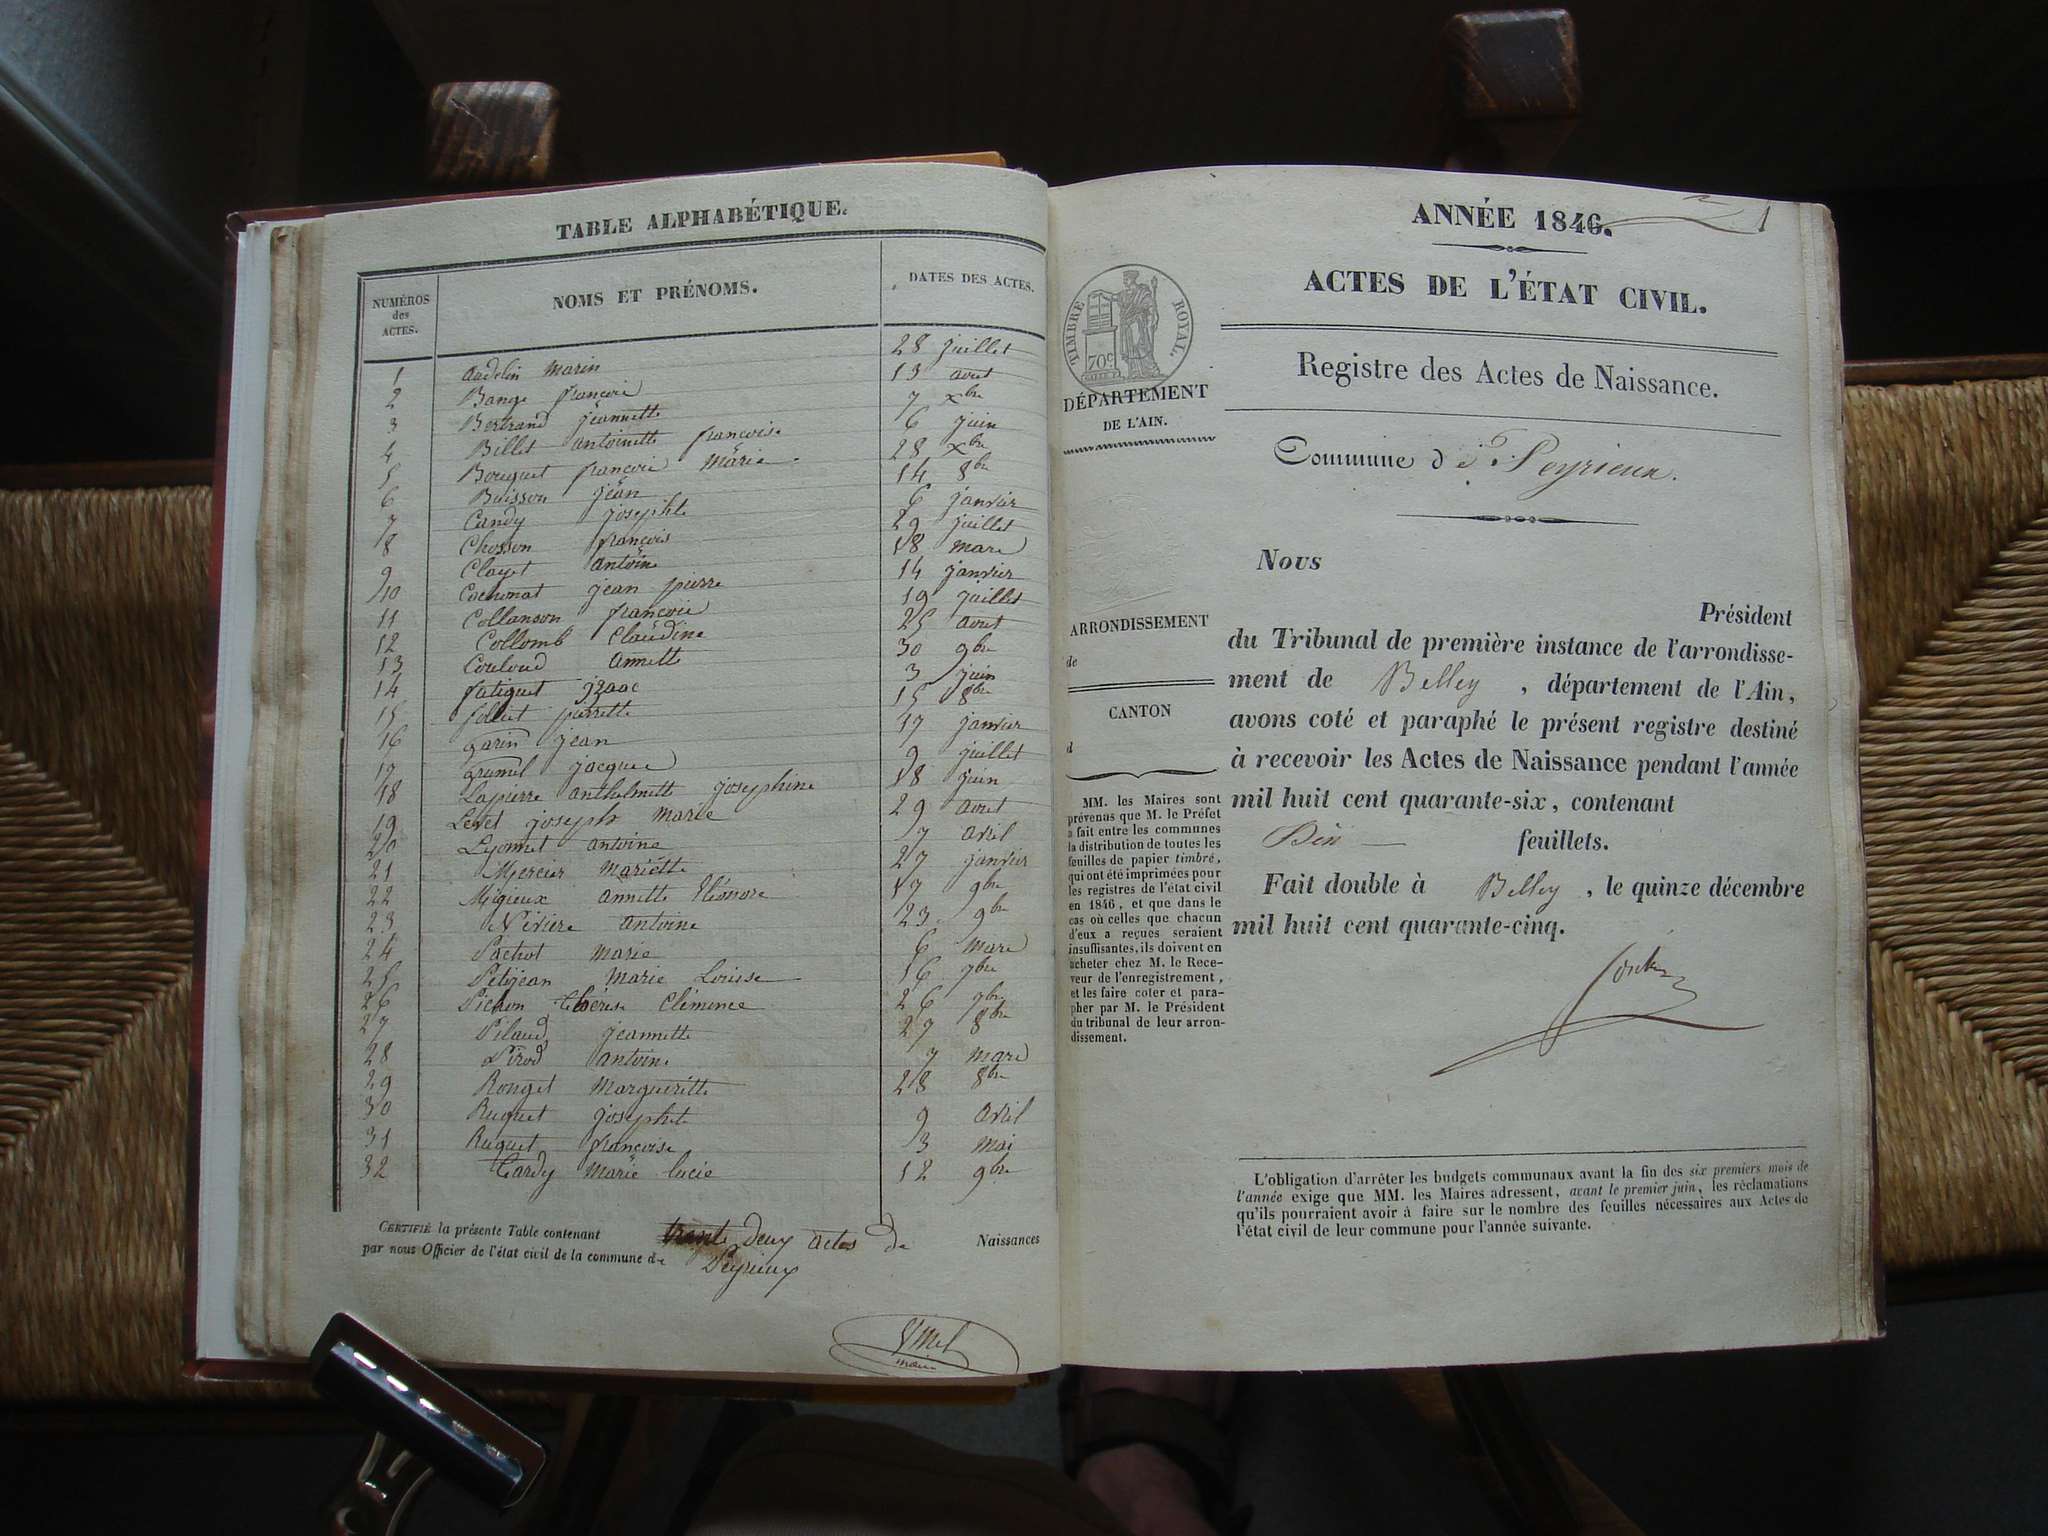 TABLE ALPHABÉTIQUE.
NUMÉROS des ACTES. NOMS ET PRÉNOMS. DATES DES ACTES.
1 Audelin Marin 28 juillet
2 Bange françois 13 aout
3 Bertrand jeannette 7 xbre
4 Billet antoinette françoise 6 juin
5 Bouquet françoise Marie 28 xbre
6 Buisson jean 14 8bre
7 Candy josephte 6 janvier
8 Chosson françois 29 juillet
9 Clayet antoine 18 mars
10 jean pierre 14 janvier
11 Collanson 19 juillet
12 Collomb Claudine 25 aout
13 Couloud annette 30 9bre
14 fatiguet izaac 3 juin
15 pierrette 15 8bre
16 garin jean 17 janvier
17 jacques 9 juillet
18 Lapierre anthelmette josephine 18 juin
19 Levet joseph marie 29 aout
20 Lyonnet antoine 7 avril
21 Mercier Mariette 27 janvier
22 Migieux annette Eléonore 17 9bre
23 Névière antoine 23 9bre
24 Pachot marie 6 mars
25 Petitjean Marie Louise 16 7bre
26 Pichon thérèse Clémence 26 7bre
27 Pilaud jeannette 27 8bre
28 Pirod antoine 7 mars
29 Rouget Margueritte 28 8bre
30 Ruguet josephte 9 avril
31 Ruguet françoise 3 mai
32 Tardy marie lucie 12 9bre
CERTIFIÉ la présente Table contenant trente deux actes de Naissances
par nous Officier de l'état civil de la commune de Peyrieux
maire
1
ANNÉE 1846.
ACTES DE L'ÉTAT CIVIL.
TIMBRE ROYAL.
70c
DÉPARTEMENT
DE L'AIN.
Registre des Actes de Naissance.
Commune de Peyrieux.
Nous
Président
ARRONDISSEMENT
de
CANTON
d
du Tribunal de première instance de l'arrondisse-
ment de Belley, département de l'Ain,
avons coté et paraphé le présent registre destiné
à recevoir les Actes de Naissance pendant l'année
mil huit cent quarante-six, contenant
Dix feuillets.
Fait double à Belley, le quinze décembre
mil huit cent quarante-cinq.
MM. les Maires sont
prévenus que M. le Préfet
a fait entre les communes
la distribution de toutes les
feuilles de papier timbré,
qui ont été imprimées pour
les registres de l'état civil
en 1846, et que dans le
cas où celles que chacun
d'eux a reçues seraient
insuffisantes, ils doivent en
acheter chez M. le Rece-
veur de l'enregistrement,
et les faire coter et para-
pher par M. le Président
du tribunal de leur arron-
dissement.
L'obligation d'arrêter les budgets communaux avant la fin des six premiers mois de
l'année exige que MM. les Maires adressent, avant le premier juin, les réclamations
qu'ils pourraient avoir à faire sur le nombre des feuilles nécessaires aux Actes de
l'état civil de leur commune pour l'année suivante.